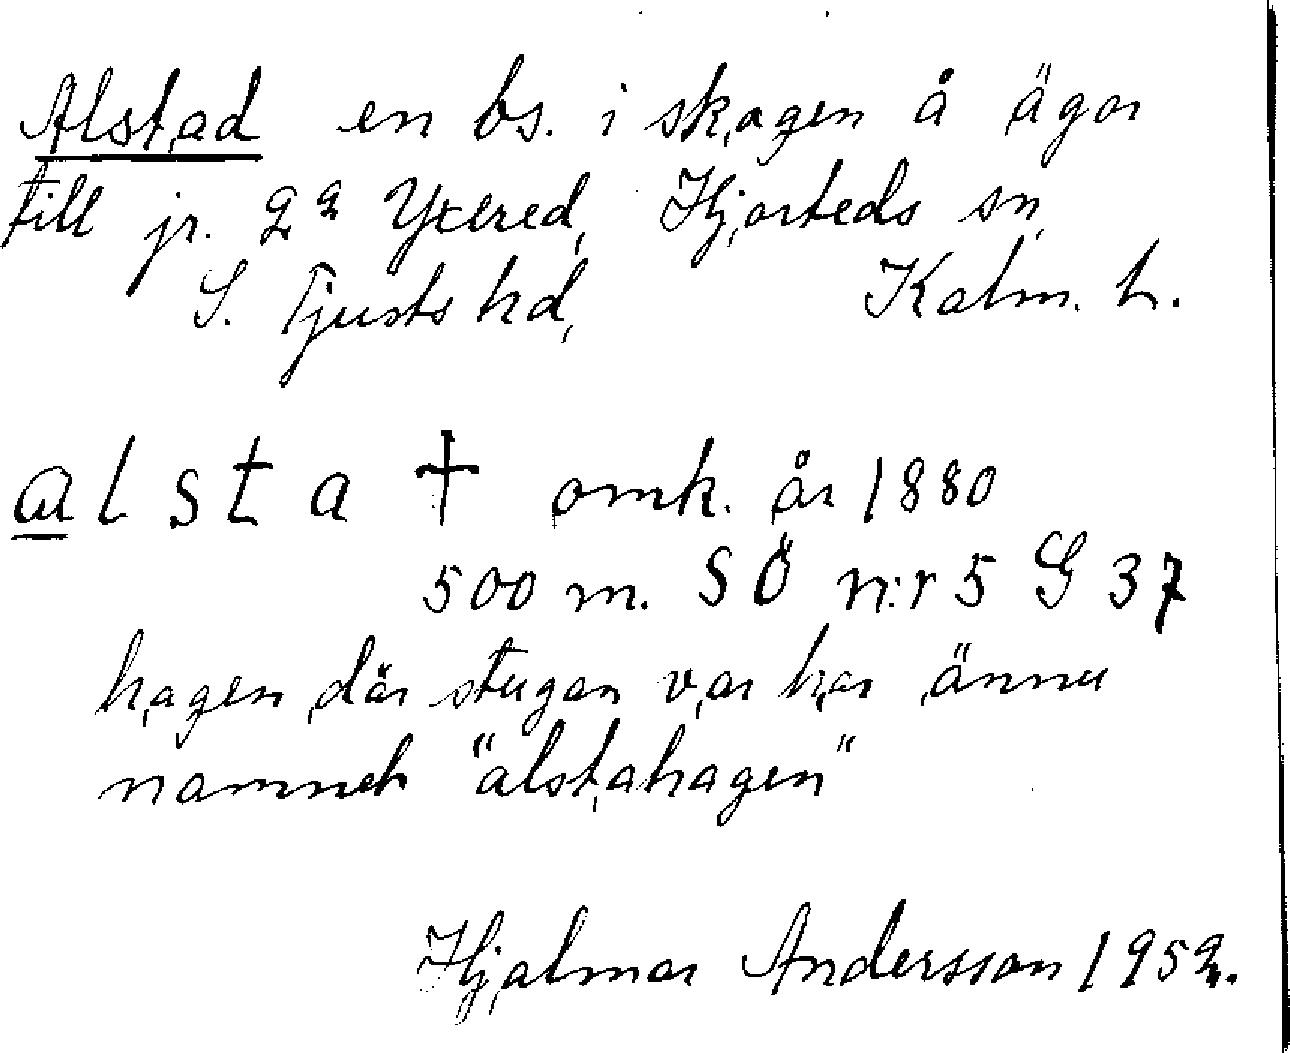 Alstad en bs. i skogen å ägor
till jr. 2² Yxered, Hjorteds sn,
S. Tjusts hd, Kalm. L.
alsta † omk. år 1880
500 m. SÖ n:r 5 G 37
hagen där stugan var har ännu
namnet "alstahagen"
Hjalmar Andersson 1952.